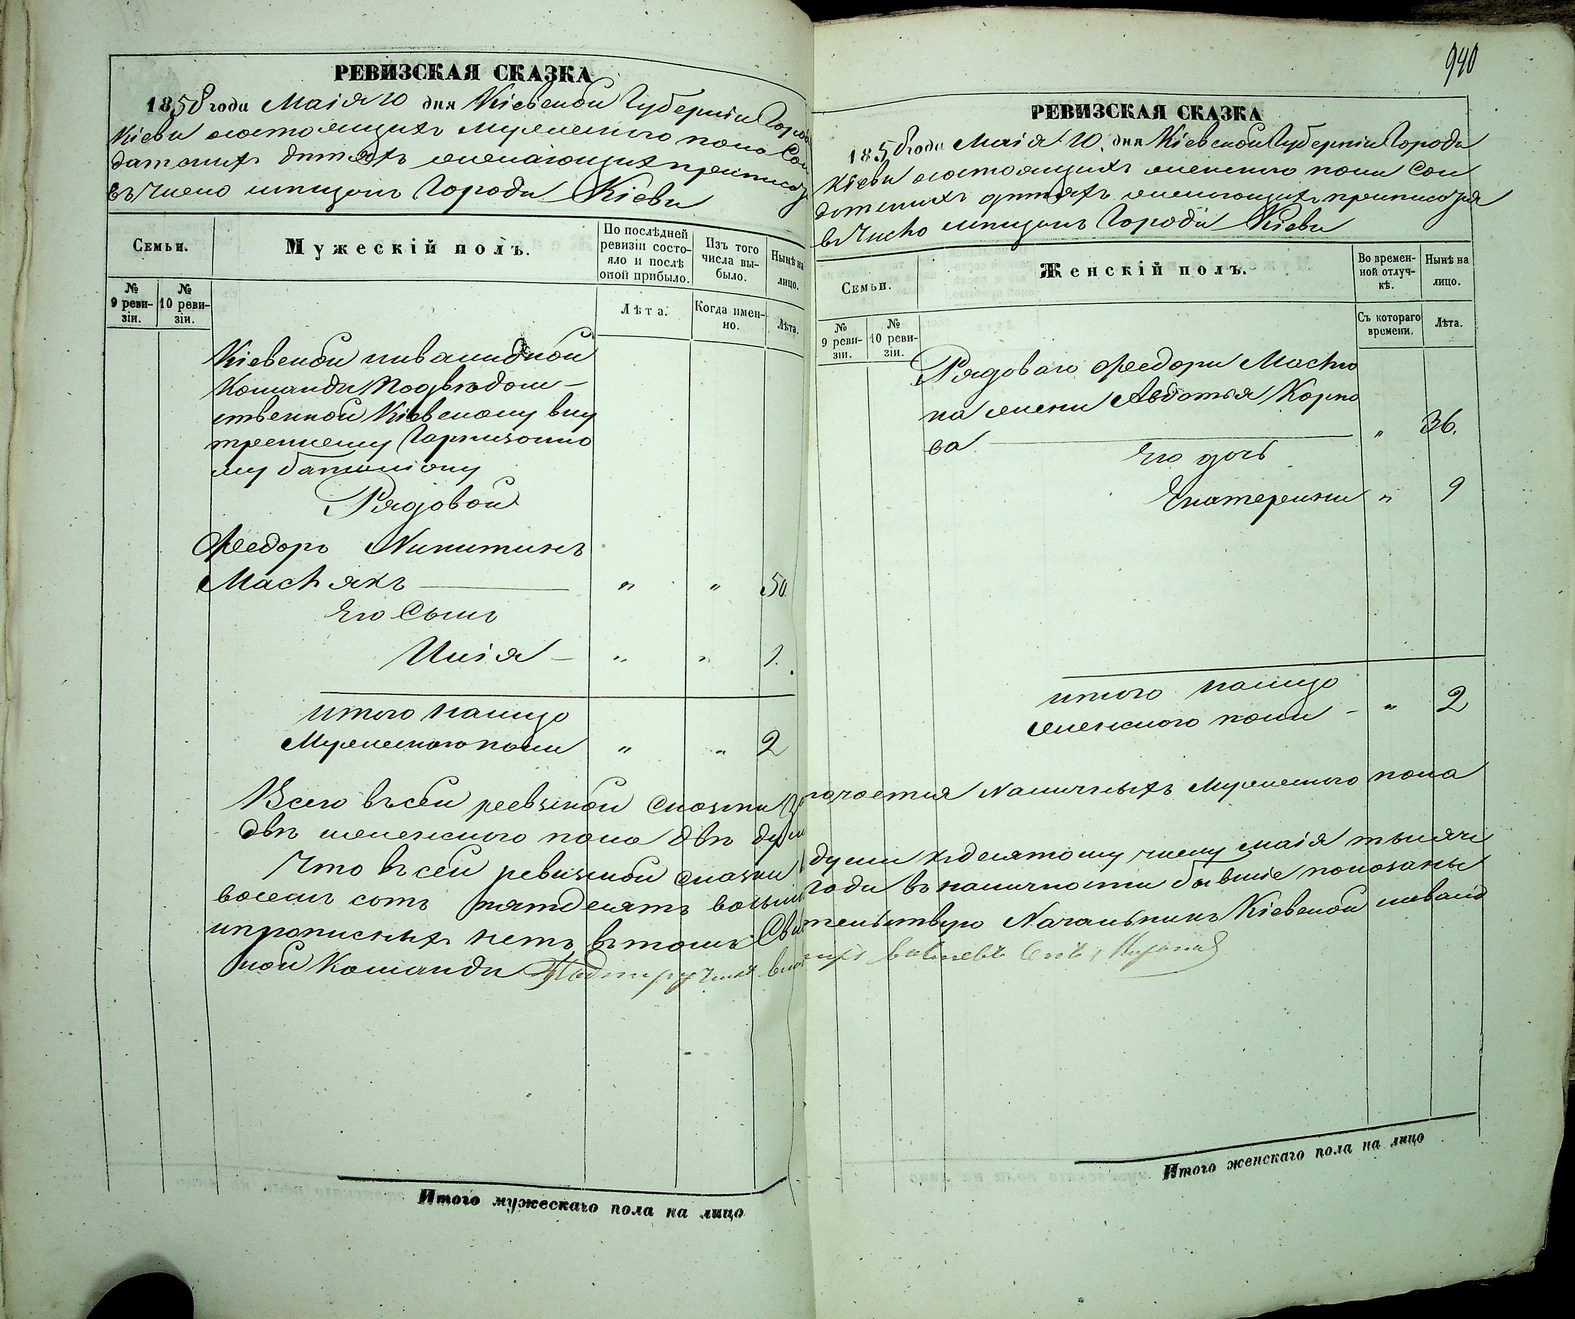 РЕВИЗСКАЯ СКАЗКА
1858 года Маія 10 дня Кіевской Губерніи Города
Кіева состоящихъ мужескаго пола Сол
датскихъ дитяхъ желающихъ приписатся
въ число мещанъ Города Кіева
Семьи.
Мужескій полъ.
По послѣдней ревизіи состояло и послѣ оной прибыло.
Изъ того числа выбыло.
Нынѣ на лицо.
№ 9 ревизіи.
№ 10 ревизіи.
Лѣта.
Когда именно.
Лѣта.
Кіевской инвалидной
Команды Подвѣдом–
ственной Кіевскому вну
треннему Гарнизонно
му баталіону
Рядовой
Феодоръ Никитинъ
Маслякъ „ „ 50
Его Сынъ
Илія – „ „ 1.
Итого налицо
Мужескаго пола „ „ 2
Итого мужескаго пола на лицо
940
РЕВИЗСКАЯ СКАЗКА
1858 года Маія 10. дня Кіевской Губерніи Города
Кіева состоящихъ женского пола Сол
датскихъ дитяхъ желающихъ приписатся
въ Число мещанъ Города Кіева
Семьи.
Женскій полъ.
Во временной отлучкѣ.
Нынѣ на лицо.
№ 9 ревизіи.
№ 10 ревизіи.
Съ котораго времени.
Лѣта.
Рядоваго Феодора Масля
ка жена Авдотья Карпо
ва „ 36.
Его дочь
Екатерина „ 9
итого налицо
женского пола – „ 2
Всего въ сей ревизской сказки наличныхъ Мужеского пола
двѣ женского пола двѣ души
Что въ сей ревизской сказки души къ десятому числу маія тысячи
восемь сотъ пятдесятъ восьмого года въ наличности бывшіе показаны
и прописныхъ нетъ въ томъ Свидетельствую Начальникъ Кіевской инвалид
ной Команды Подпоручикъ
Итого женскаго пола на лицо